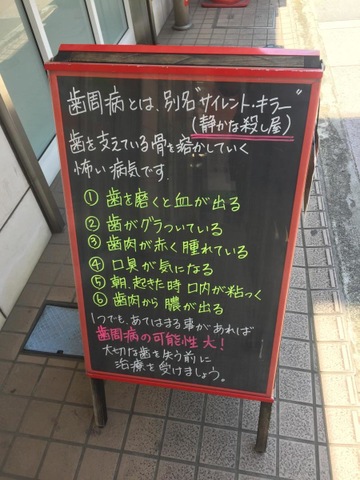 歯周病とは、別名"サイレント・キラー"
(静かな殺し屋)
歯を支えている骨を溶かしていく
怖い病気です.
① 歯を磨くと血が出る
② 歯がグラついている
③ 歯肉が赤く腫れている
④ 口臭が気になる
⑤ 朝、起きた時口内が粘つく
⑥ 歯肉から膿が出る
1つでも、あてはまる事があれば
歯周病の可能性大!
大切な歯を失う前に
治療を受けましょう。